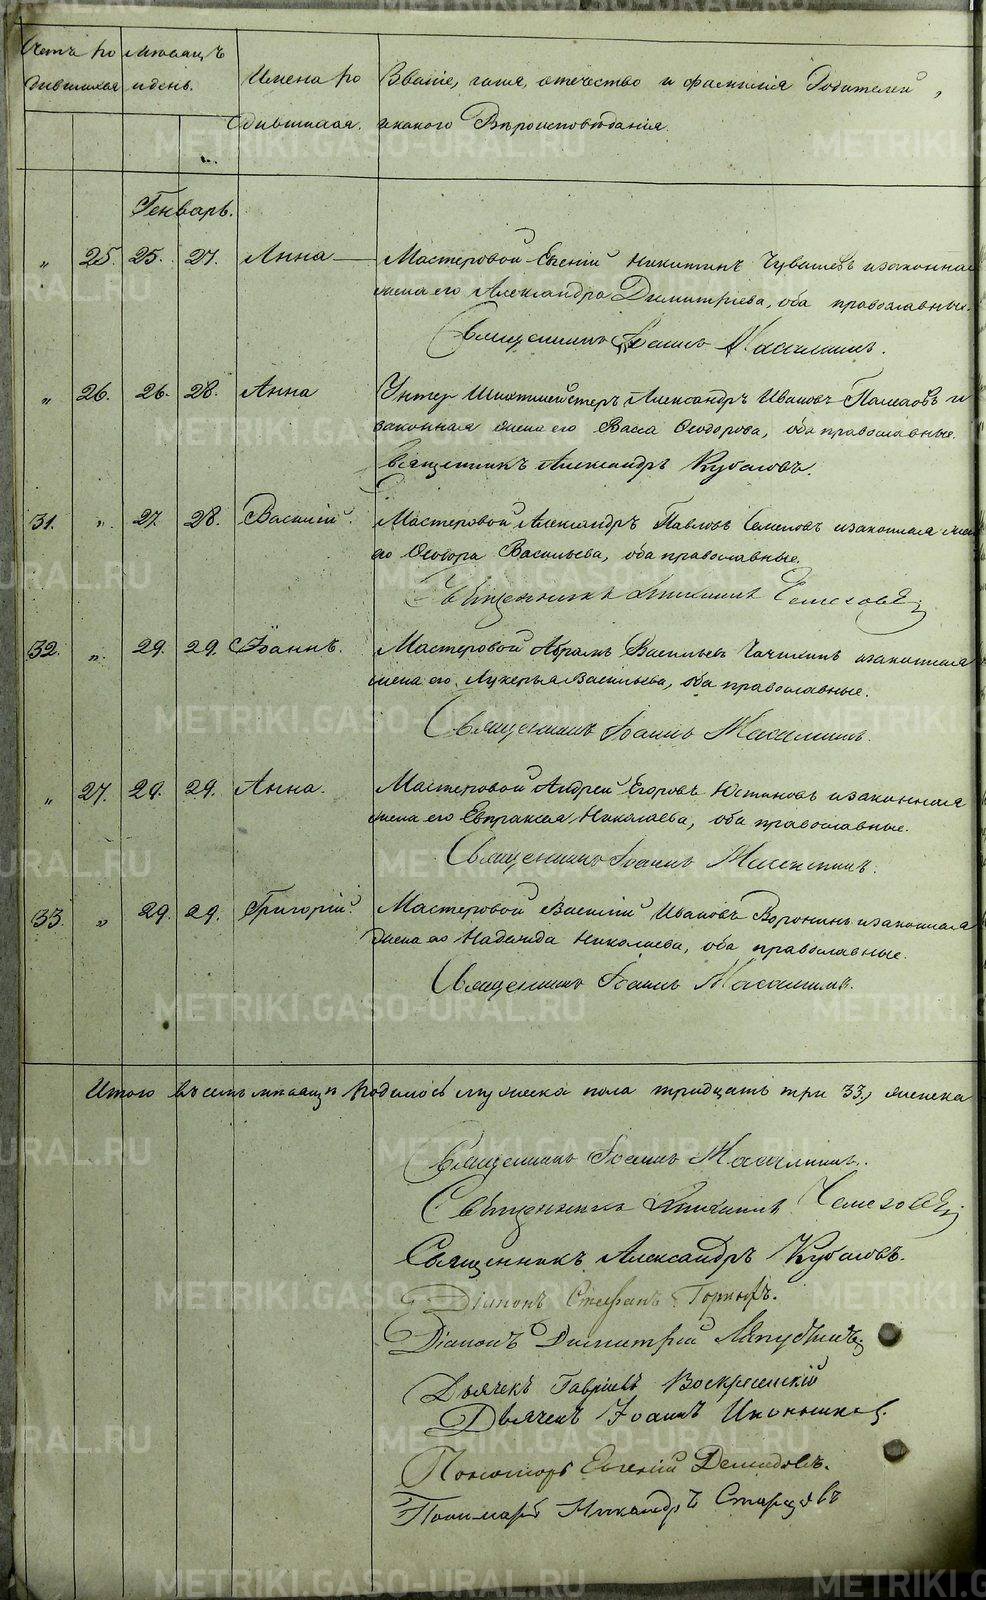 Счетъ ро мѣсяцъ
дившихся идень. Имена ро Званіе, имя, отечество и фамилія Родителей,
дившихся. икакого Вѣроисповѣданія.
Генварь.
" 25. 25. 27. Анна Мастеровой Евгеній Никитинъ Чувашевъ изаконная
жена его Александра Димитріева, оба православные.
Священникъ Іоаннъ
" 26. 26. 28. Анна Унтер Шихтмейстеръ Александръ Ивановъ и
законная жена его Васса Ѳеодорова, оба православные.
Священникъ Александръ Кубасовъ.
31. " 27 28. Василій. Мастеровой Александръ Павловъ изаконная жена
его Ѳеодора Васильева, оба православные.
Священникъ
32. " 29. 29. Іоаннъ. Мастеровой Абрамъ Васильевъ изаконная
жена его Лукерья Васильева, оба православные.
Священникъ Іоаннъ
" 27. 29. 29. Анна. Мастеровой Андрей Егоровъ Устиновъ изаконная
жена его Евпраксея Николаева, оба православные.
Священникъ Іоаннъ
33. " 29. 29. Григорій. Мастеровой Василій Ивановъ Воронинъ изаконная
жена его Надежда Николаева, оба православные.
Священникъ Іоаннъ
Итого въ семъ мѣсяцѣ Родилось мужеска пола тридцать три 33, женска
Священникъ Іоаннъ
Священникъ
Священникъ Александръ Кубасовъ.
Діаконъ Стефанъ
Діаконъ Димитрій
Дьячекъ Гавріилъ Воскресенскій
Дьячекъ Іоаннъ
Пономарь Евгеній Демидовъ.
Пономарь Никандръ Старцовъ
METRIKI.GASO-URAL.RU